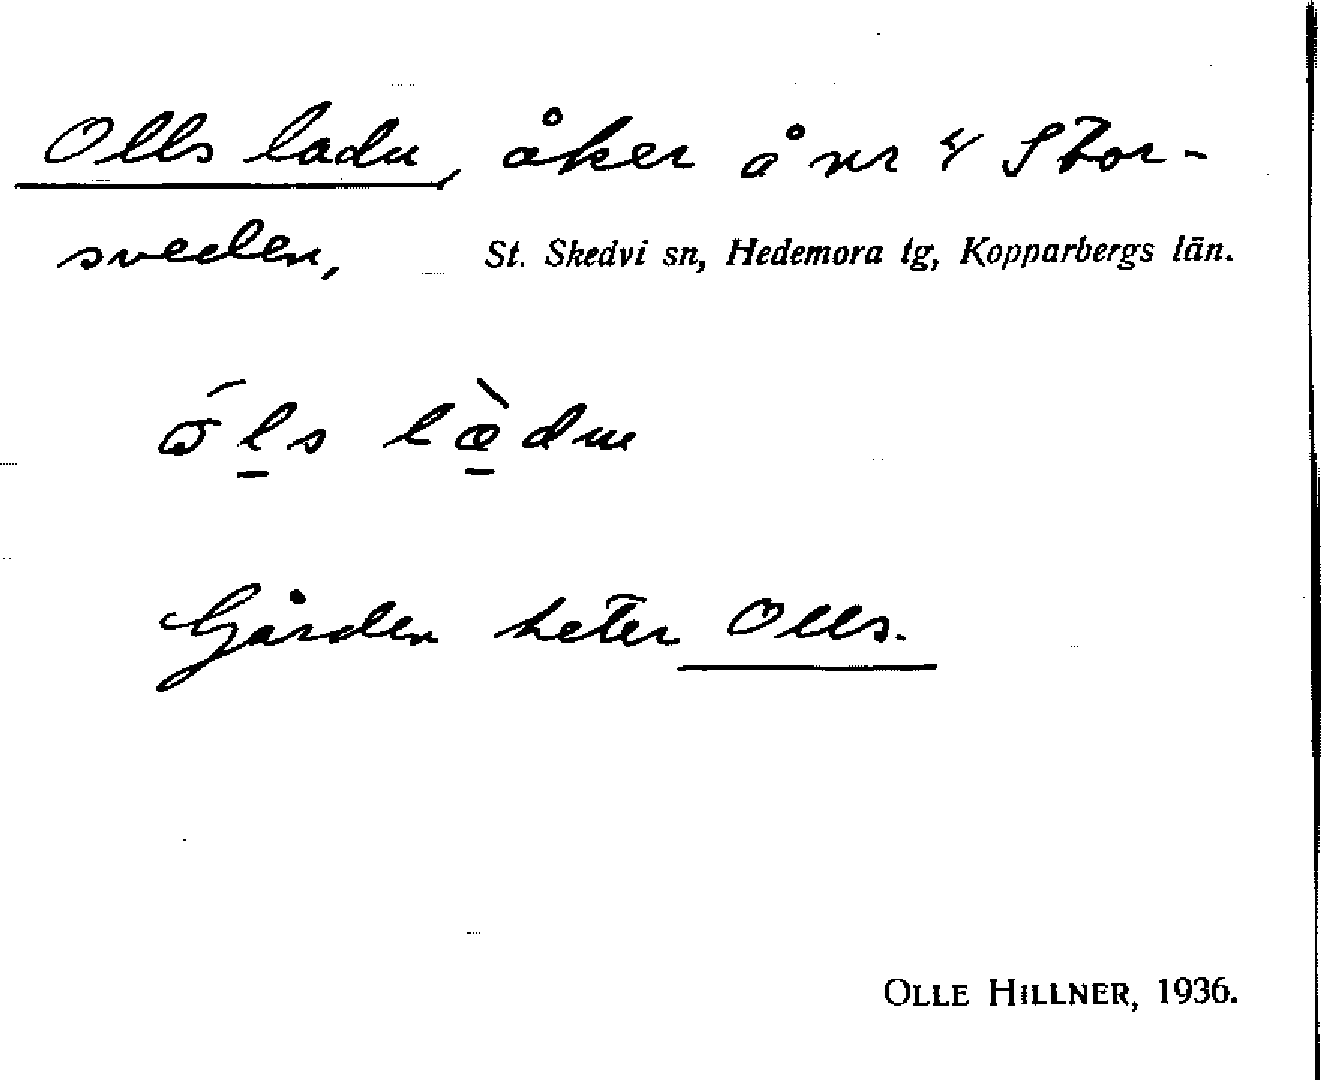 Olls ladu, åker å nr 4 Stor-
sveden, St. Skedvi sn, Hedemora tg, Kopparbergs län.
Gården heter Olls.
OLLE HILLNER, 1936.